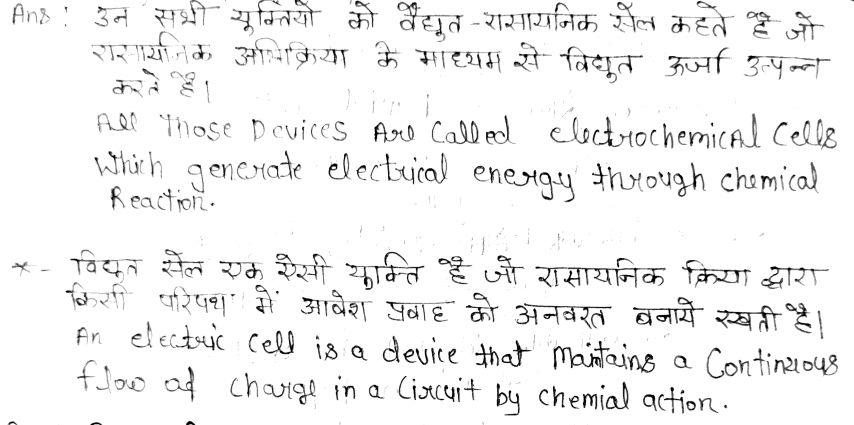 Ans : उन सभी युक्तियो को वैद्युत-रासायनिक सेल कहते है जो
रासायनिक अभिक्रिया के माध्यम से विद्युत ऊर्जा उत्पन्न
करते है।
All Those Devices Are Called electrochemical Cells
Which generate electrical energy through chemical
Reaction.
* - विद्युत सेल एक ऐसी युक्ति है जो रासायनिक क्रिया द्वारा
किसी परिपथ में आवेश प्रवाह को अनवरत बनाये रखती है।
An electric Cell is a device that Maintains a Continuous
flow of charge in a Circuit by chemial action.